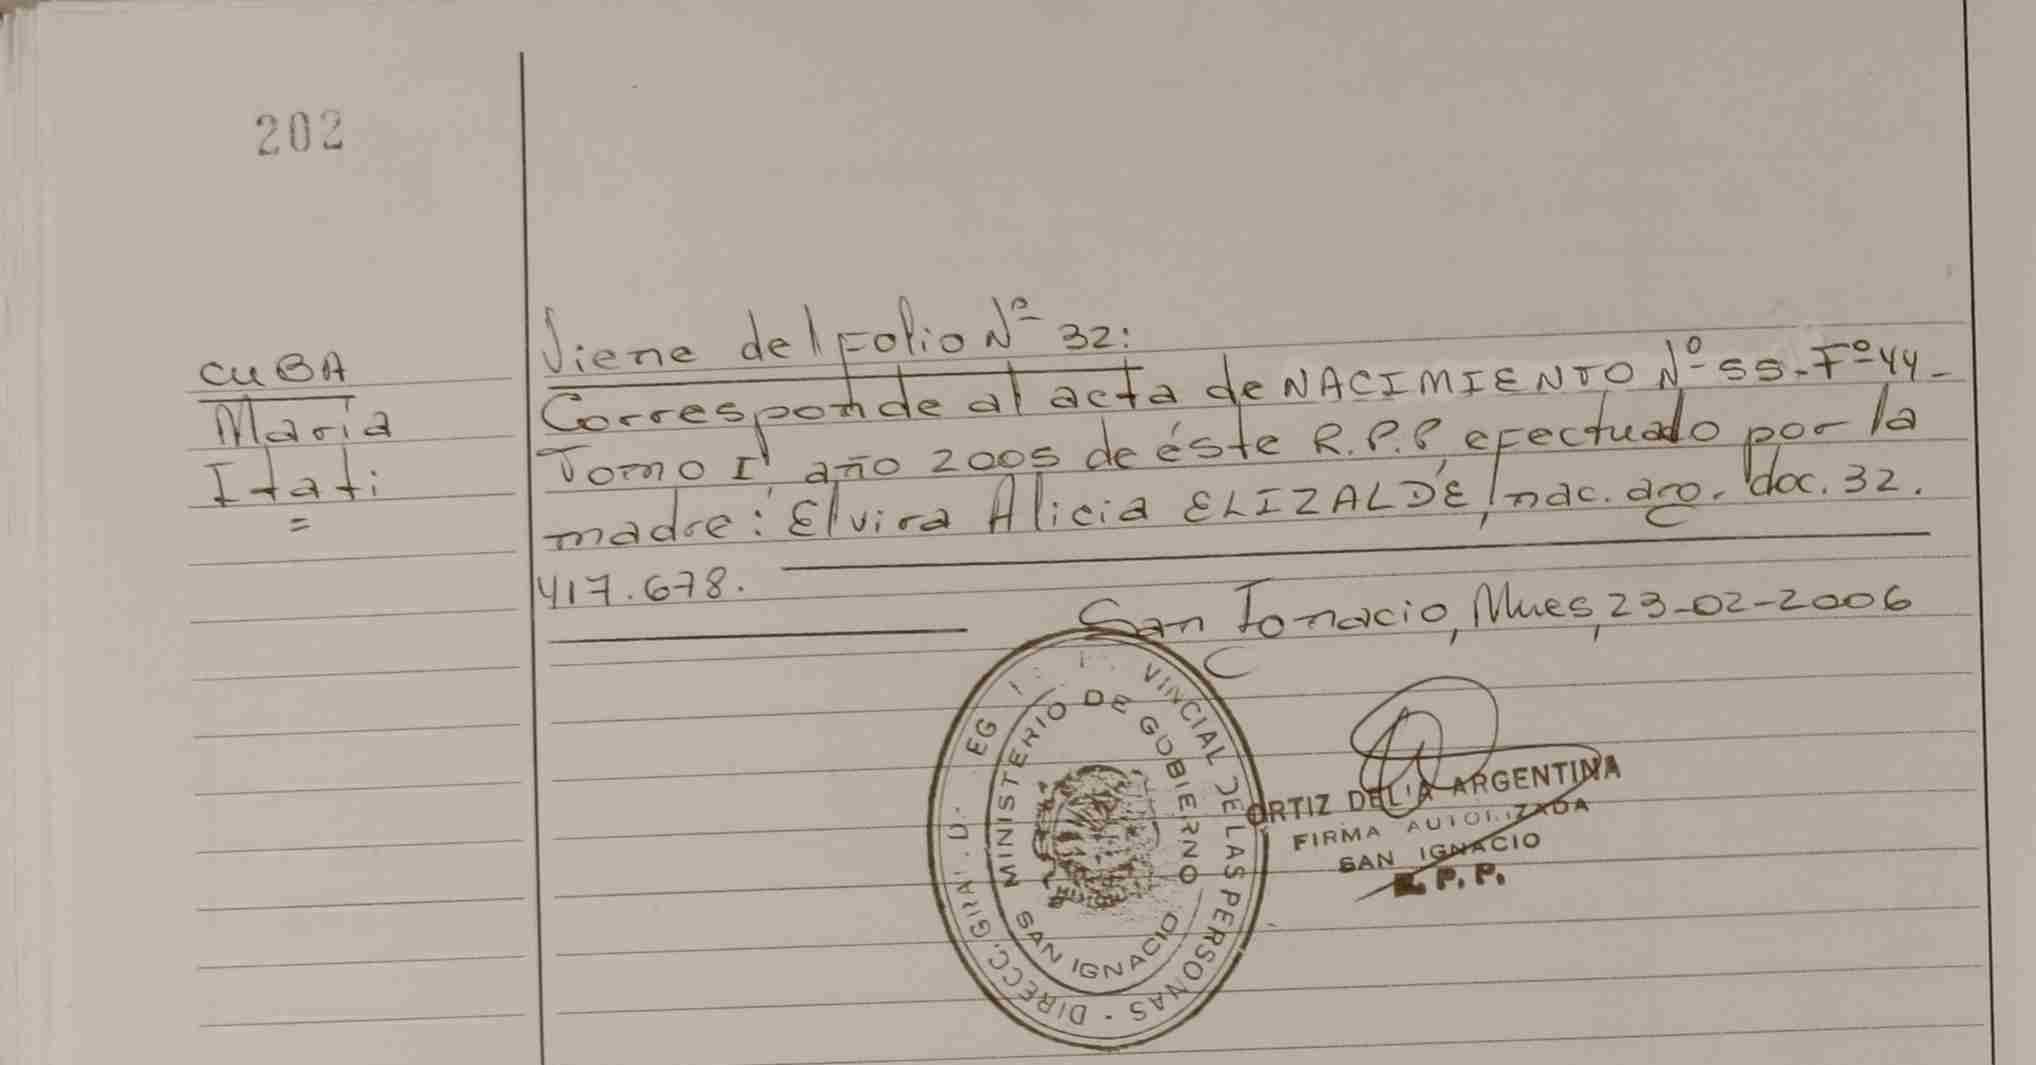 202
CUBA
María
Itati
=
Viene del Folio Nº 32:
Corresponde al acta de NACIMIENTO Nº 55-Fº44-
Tomo I año 2005 de éste R.P.P, efectuado por la
madre: Elvira Alicia ELIZALDE, nac. arg. doc. 32.
417.678.
San Ignacio, Mnes, 23-02-2006
VINCIAL DE LAS PERSONAS - DIRECC. GRAL. D.
MINISTERIO DE GOBIERNO
SAN IGNACIO
ORTIZ DELIA ARGENTINA
FIRMA AUTORIZADA
SAN IGNACIO
R. P. P.